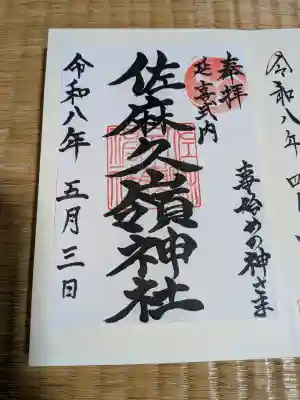 奉拝
延喜式内
事始めの神さま
佐麻久嶺神社
令和八年 五月三日
令和八年 四月